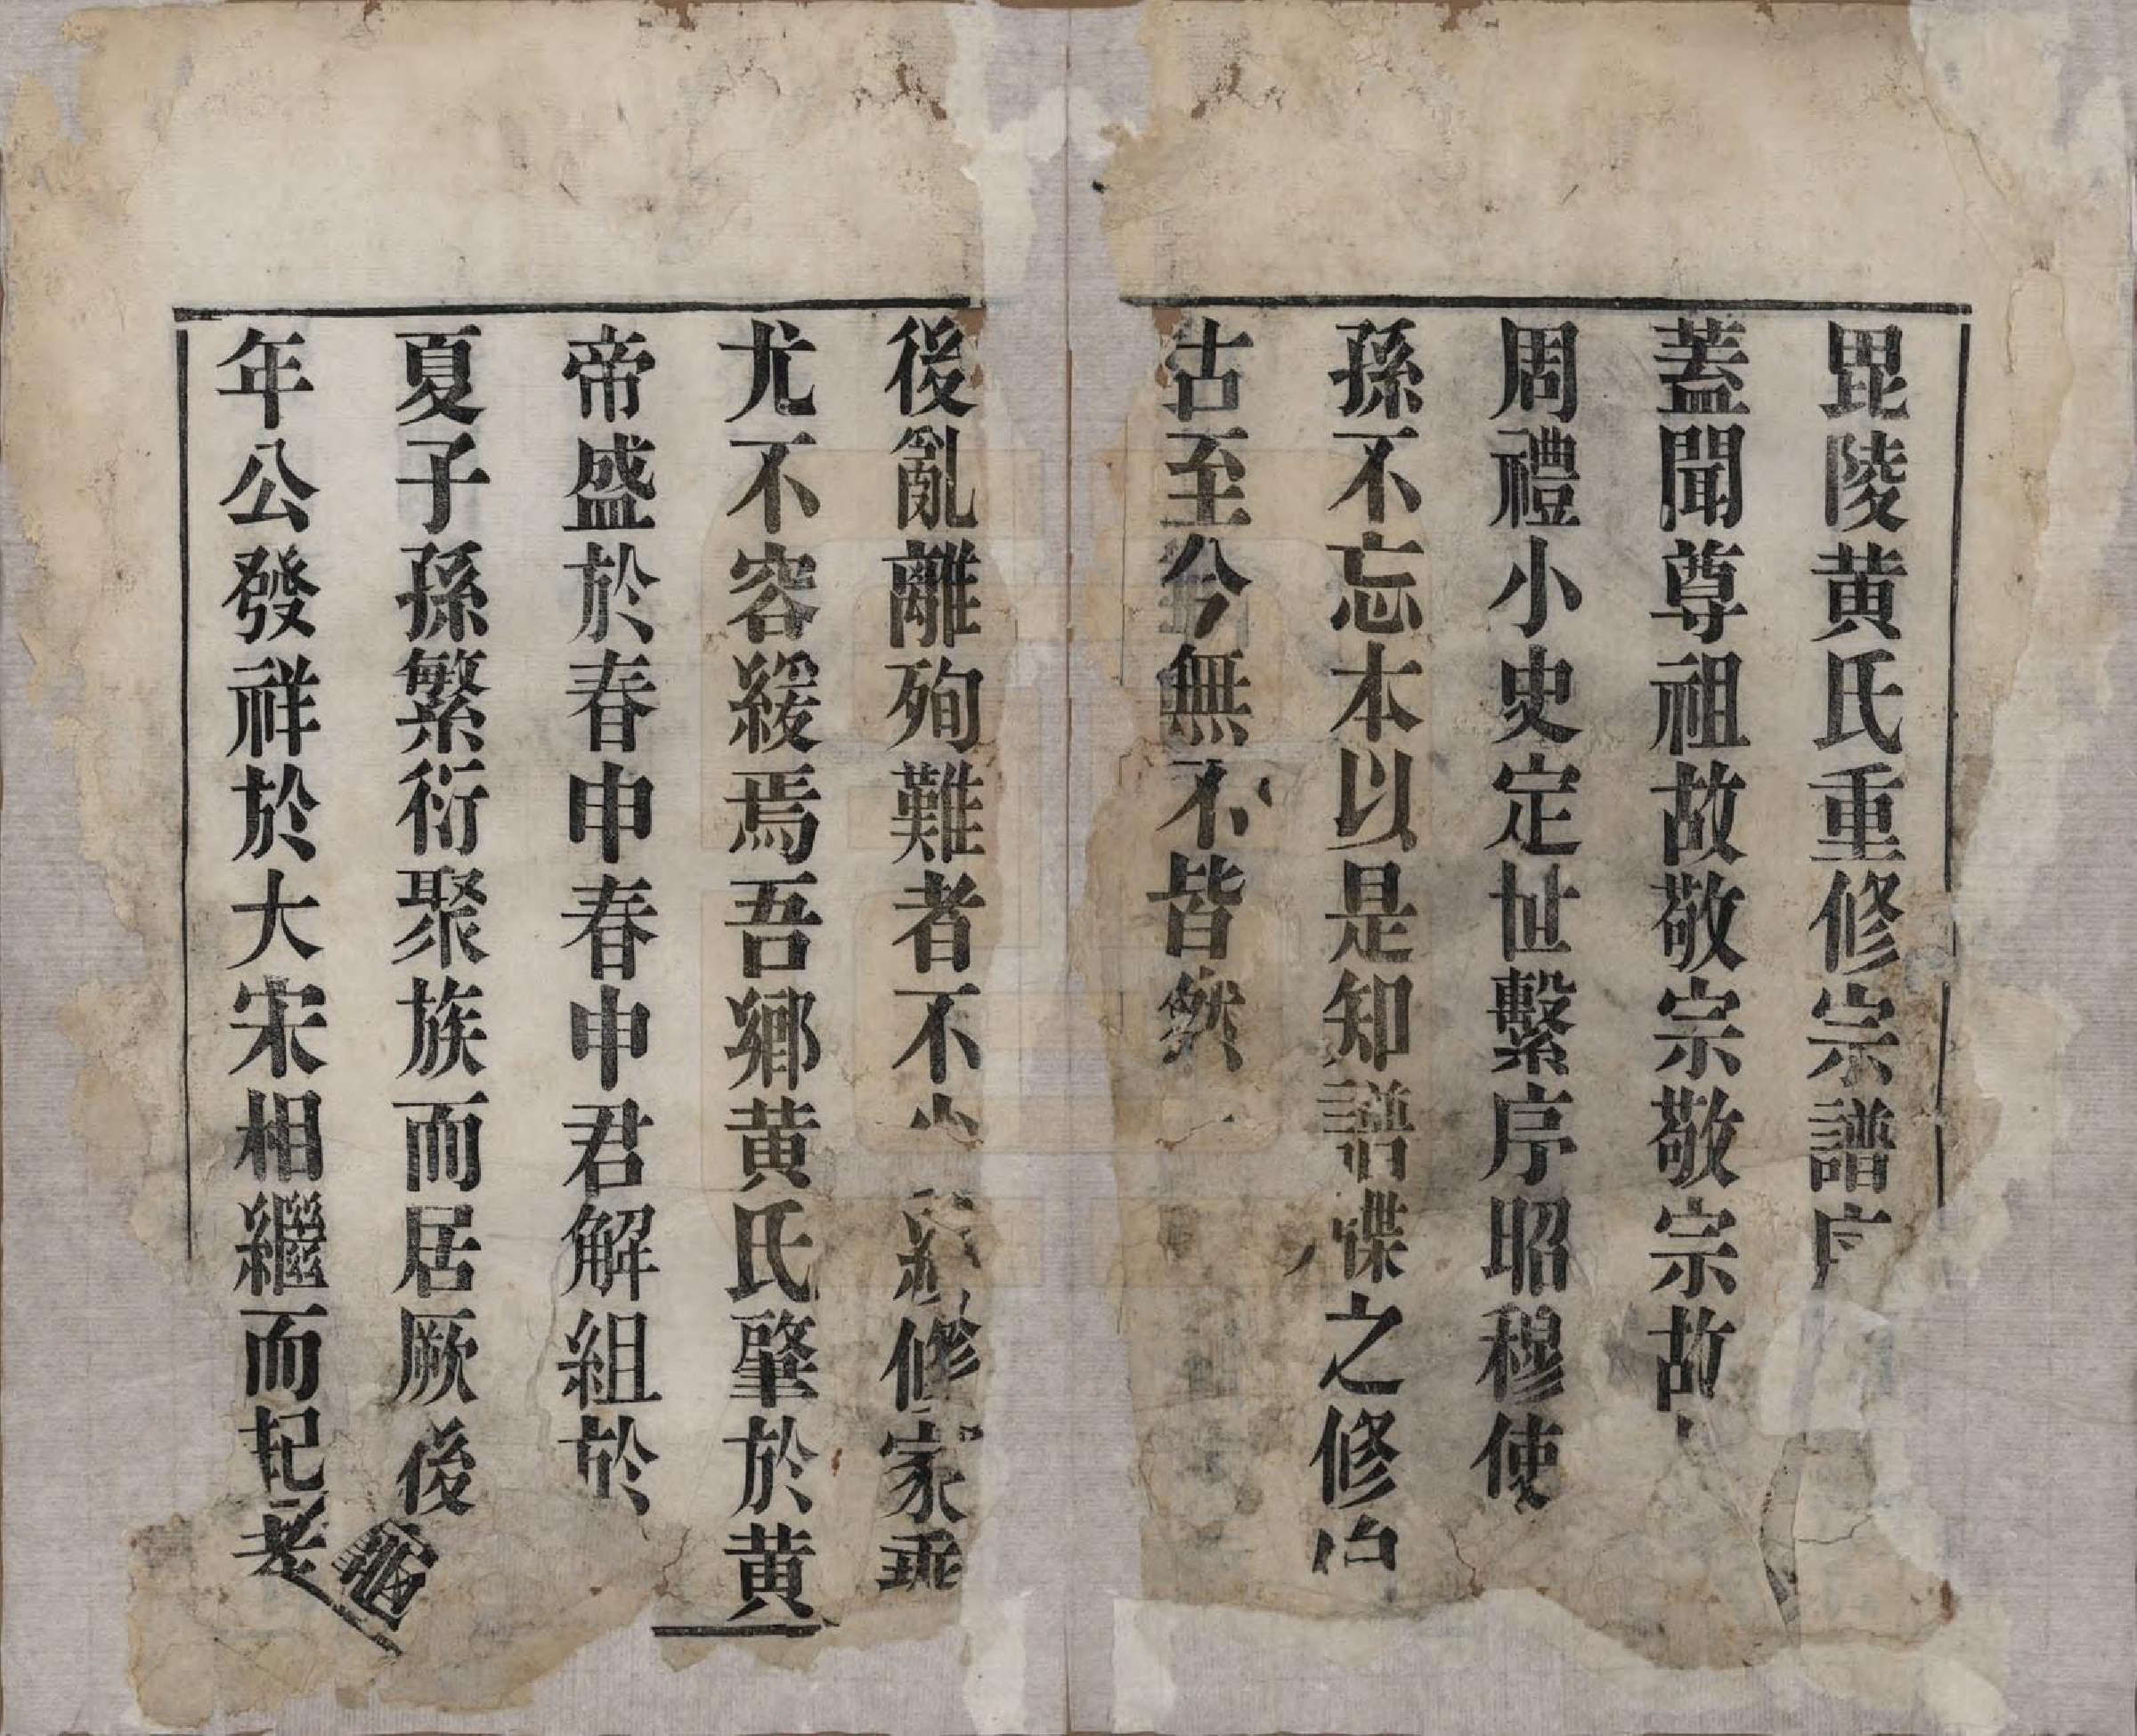 毘陵黄氏重修宗譜序
蓋聞尊祖故敬宗敬宗故
周禮小史定世繫序昭穆使
孫不忘本以是知譜諜之修
古至今無不皆然
後亂離殉難者不 修家乘
尤不容緩焉吾鄉黄氏肇於黄
帝盛於春申春申君解組於
夏子孫繁衍聚族而居厥後龜
年公發祥於大宋相繼而起者